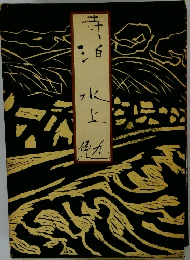 寺泊
水上勉